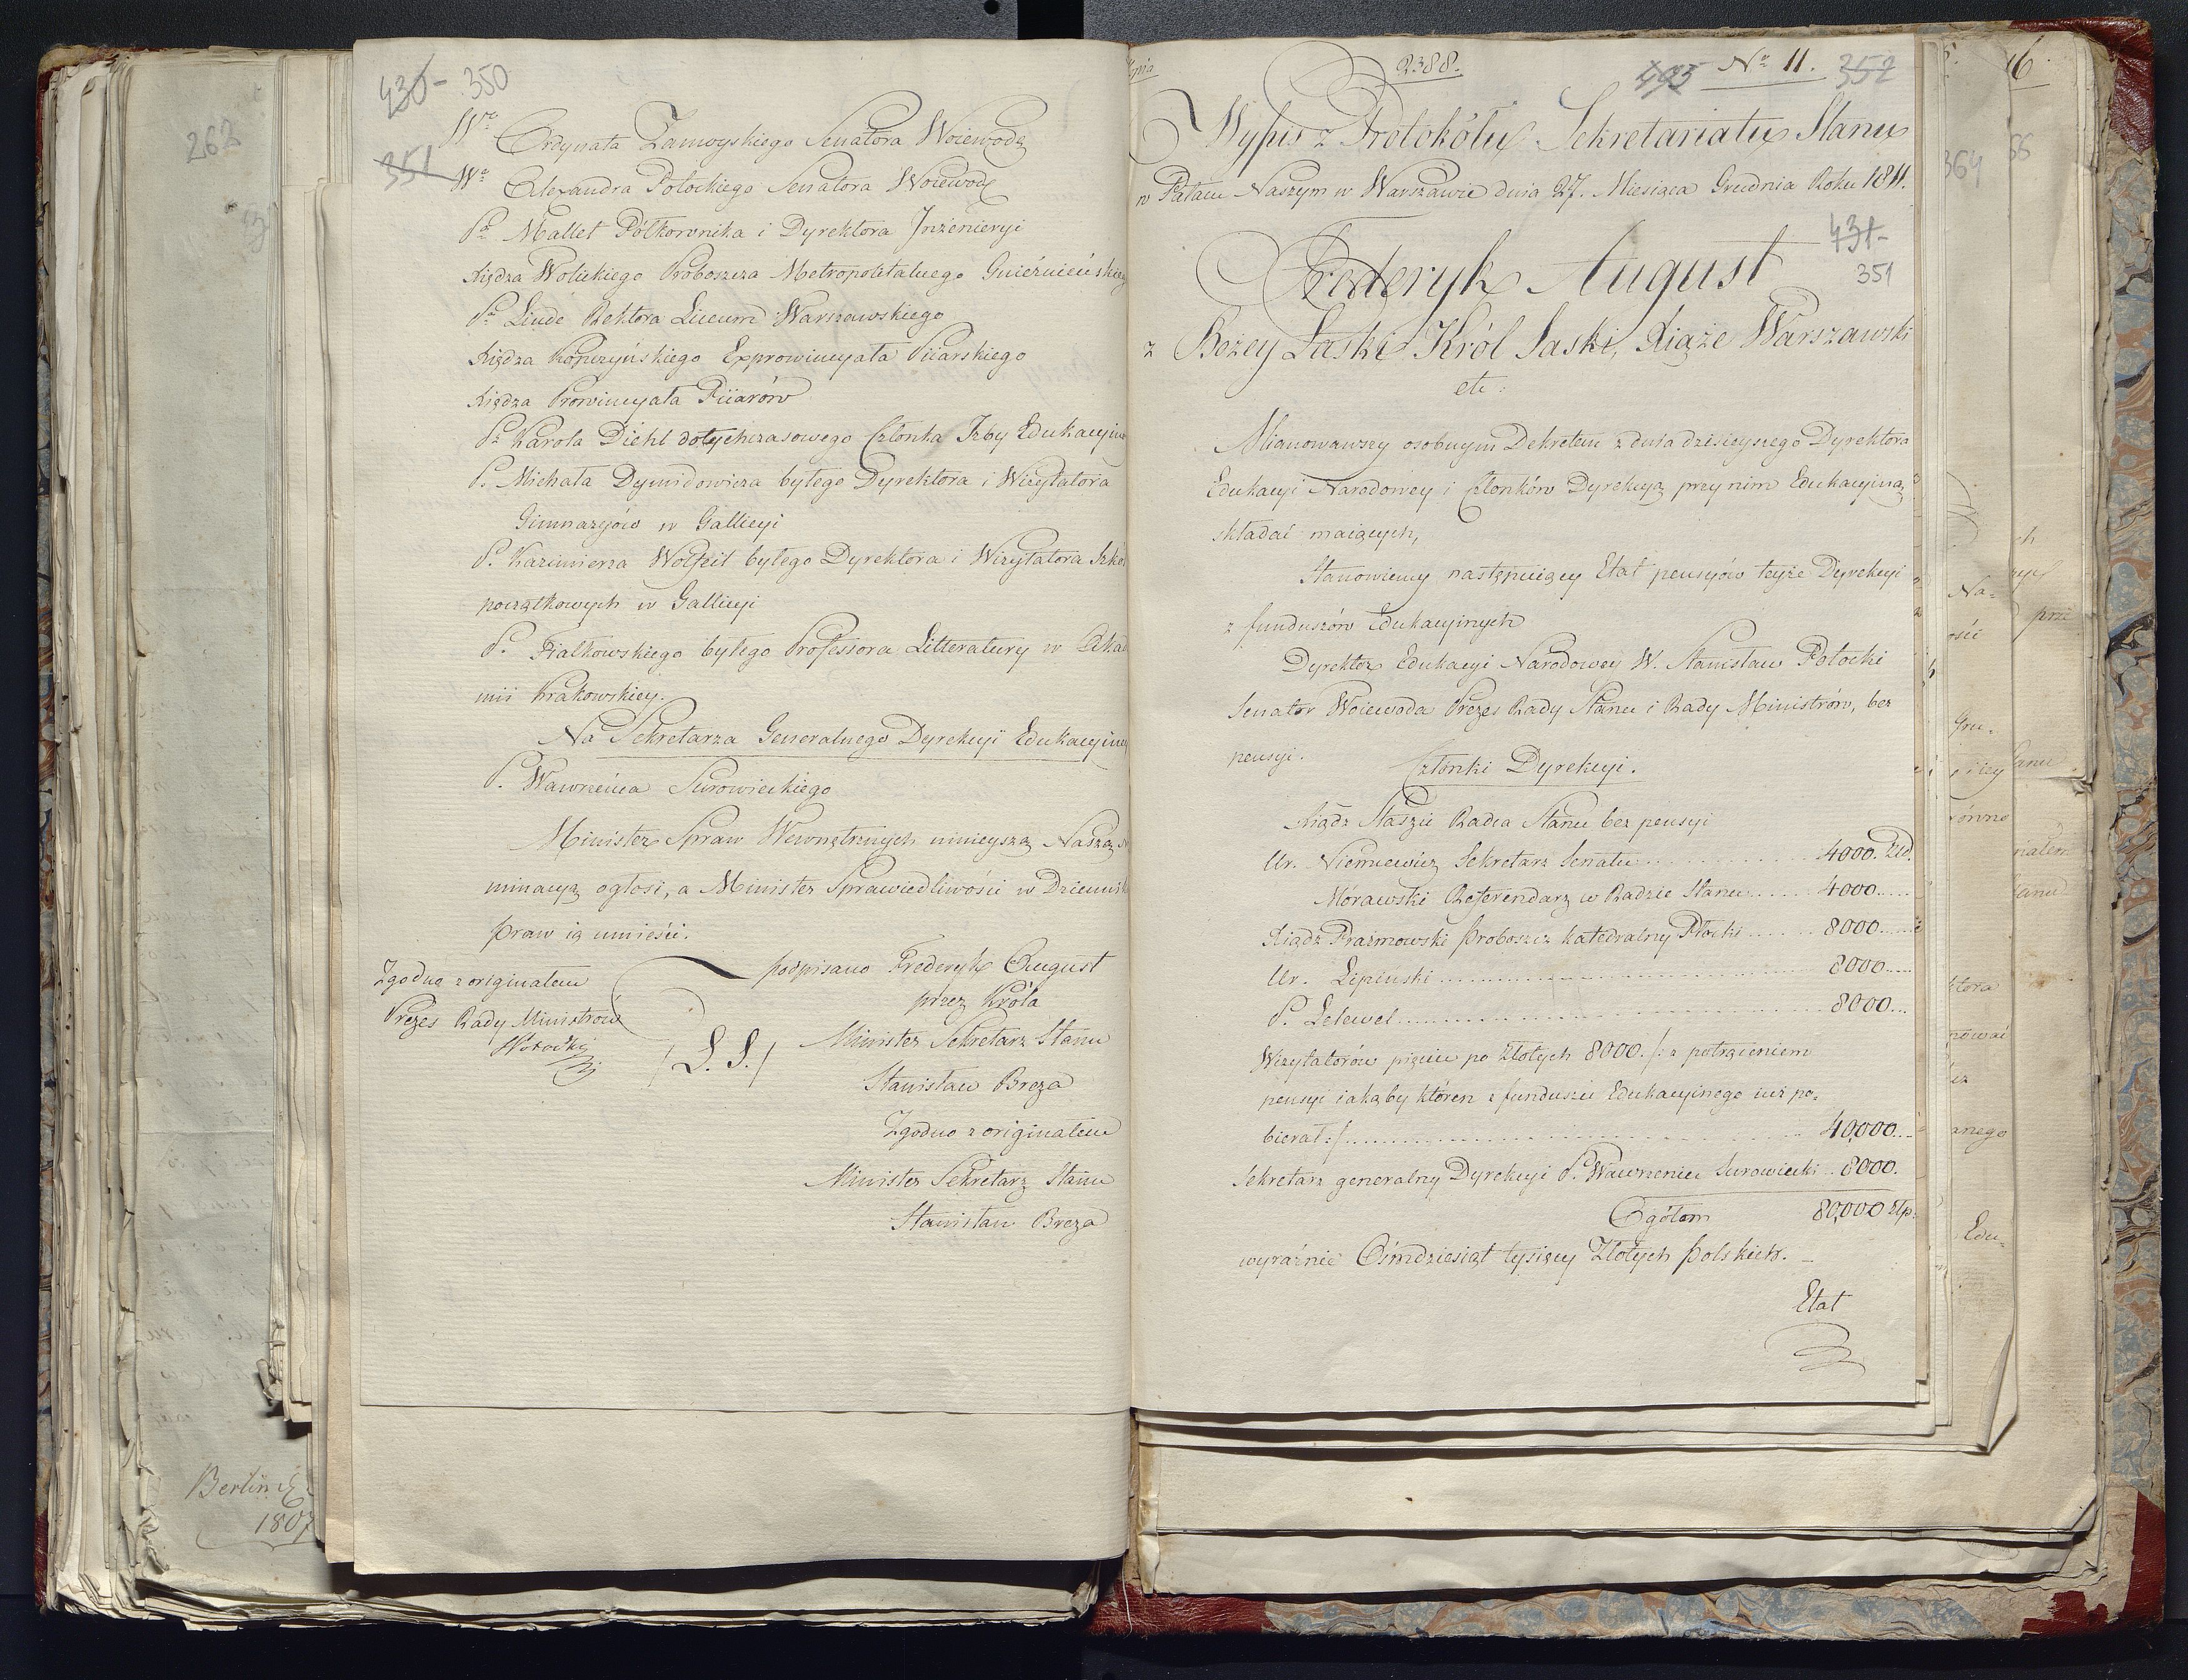 430 350
351
Wo Ordynata Zamoyskiego Senatora Woiewodę
Wo Alexandra Potockiego Senatora Woiewodę
P. Mallet Półkownika i Dyrektora Inżenieryi
Xiędza Wolickiego Proboszcza Metropolitalnego Gnieźnieńskieg
P. Linde Rektora Liceum Warszawskiego
Xiędza Kopczyńskiego Exprowincyała Piiarskiego
Xiędza Prowincyała Piiarów
P. Karola Diehl dotychczasowego Członka Izby Edukacyin
P. Michała Dymidowicza byłego Dyrektora i Wizytatora
Gimnazyów w Gallicyi
P. Kazimierza Wolfeil byłego Dyrektora i Wizytatora Szkó
początkowych w Gallicyi
P. Fialkowskiego byłego Professora Litteratury w Akad
mii Krakowskiey.
Na Sekretarza Generalnego Dyrekcyi Edukacyiney
P. Wawrzeńca Surowieckiego
Minister Spraw Wewnętrznych ninieyszą Naszą N
minacyą ogłosi, a Minister Sprawiedliwości w Dziennik
praw ią umieści.
podpisano Frederyk August
przez Króla
Minister Sekretarz Stanu
/L. S./
Stanisław Breza
Zgodno z originałem
Minister Sekretarz Stanu
Stanisław Breza
Zgodno z originałem
Prezes Rady Ministrów
2388. 495 No 11. 352
Wypis z Protokółu Sekretariatu Stanu
w Pałacu Naszym w Warszawie dnia 27. Miesiąca Grudnia Roku 1811.
431
351
Frederyk August
z Bożey Łaski Król Saski, Xiąże Warszawski
etc:
Mianowawszy osobnym Dekretem z dnia dzisieyszego Dyrektora
Edukacyi Narodowey i Członków Dyrekcyą przy nim Edukacyiną
składać maiących,
Stanowiemy następuiący Etat pensyów teyże Dyrekcyi
z funduszów Edukacyinych
Dyrektor Edukacyi Narodowey W. Stanisław Potocki
Senator Woiewoda Prezes Rady Stanu i Rady Ministrów, bez
pensyi.
Członki Dyrekcyi.
Xiądz Staszic Radca Stanu bez pensyi
Ur. Niemcewicz Sekretarz Senatu ........ 4000. Złł.
Morawski Referendarz w Radzie Stanu ...... 4000.....
Xiądz Prażmowski Proboszcz Katedralny Płocki ...... 8000.....
Ur. Lipiński ........ 8000.....
P. Lelewel ........ 8000....
Wizytatorów pięciu po Złotych 8000. /: z potrąceniem
pensyi iaką by któren z funduszu Edukacyinego iuż po-
bierał :/ ........ 40,000....
Sekretarz generalny Dyrekcyi P. Wawrzeniec Surowiecki .. 8000.
Ogółem 80,000 Złp.
wyraźnie Ośmdziesiąt tysięcy Złotych Polskich. -
Etat
262
Berlin
1807
364